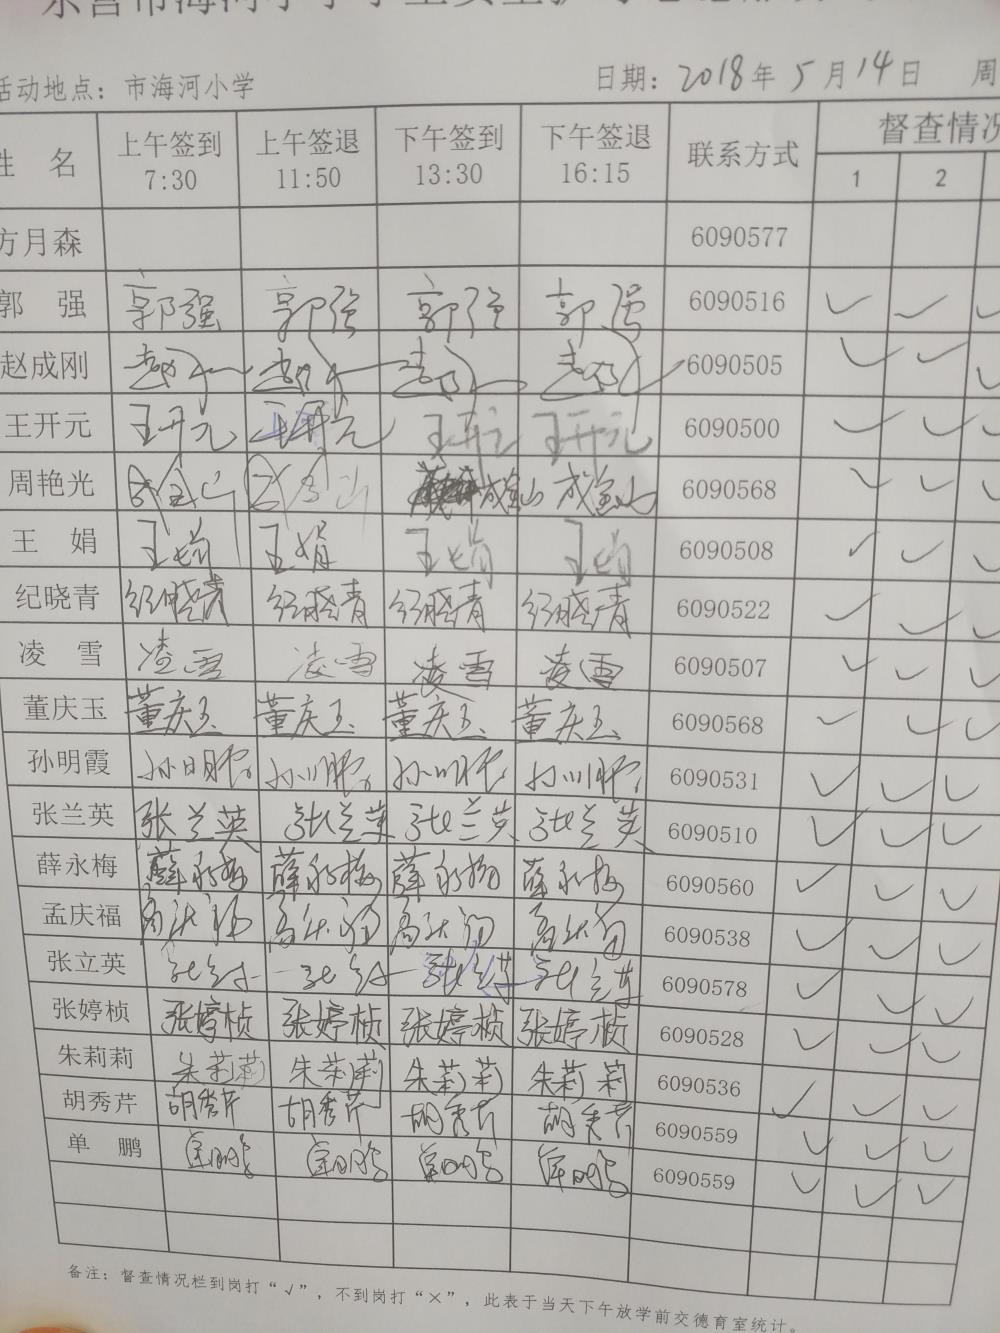 活动地点：市海河小学 日期：2018年5月14日 周
姓 名 上午签到 7:30 上午签退 11:50 下午签到 13:30 下午签退 16:15 联系方式 督查情况
1 2
方月森 6090577
郭 强 郭强 郭强 郭强 郭强 6090516 ✓ ✓ ✓
赵成刚 6090505 ✓ ✓ ✓
王开元 王开元 王开元 王开元 王开元 6090500 ✓ ✓ ✓
周艳光 成宝山 成宝山 6090568 ✓ ✓ ✓
王 娟 王娟 王娟 王娟 王娟 6090508 ✓ ✓ ✓
纪晓青 纪晓青 纪晓青 纪晓青 纪晓青 6090522 ✓ ✓ ✓
凌 雪 凌雪 凌雪 凌雪 凌雪 6090507 ✓ ✓ ✓
董庆玉 董庆玉 董庆玉 董庆玉 董庆玉 6090568 ✓ ✓ ✓
孙明霞 孙明霞 孙明霞 孙明霞 孙明霞 6090531 ✓ ✓ ✓
张兰英 张兰英 张兰英 张兰英 张兰英 6090510 ✓ ✓ ✓
薛永梅 薛永梅 薛永梅 薛永梅 薛永梅 6090560 ✓ ✓ ✓
孟庆福 6090538 ✓ ✓ ✓
张立英 6090578 ✓ ✓ ✓
张婷桢 张婷桢 张婷桢 张婷桢 张婷桢 6090528 ✓ ✓ ✓
朱莉莉 朱莉莉 朱莉莉 朱莉莉 朱莉莉 6090536 ✓ ✓ ✓
胡秀芹 胡秀芹 胡秀芹 胡秀芹 胡秀芹 6090559 ✓ ✓ ✓
单 鹏 单鹏 单鹏 单鹏 单鹏 6090559 ✓ ✓ ✓
备注：督查情况栏到岗打“√”，不到岗打“×”，此表于当天下午放学前交德育室统计。